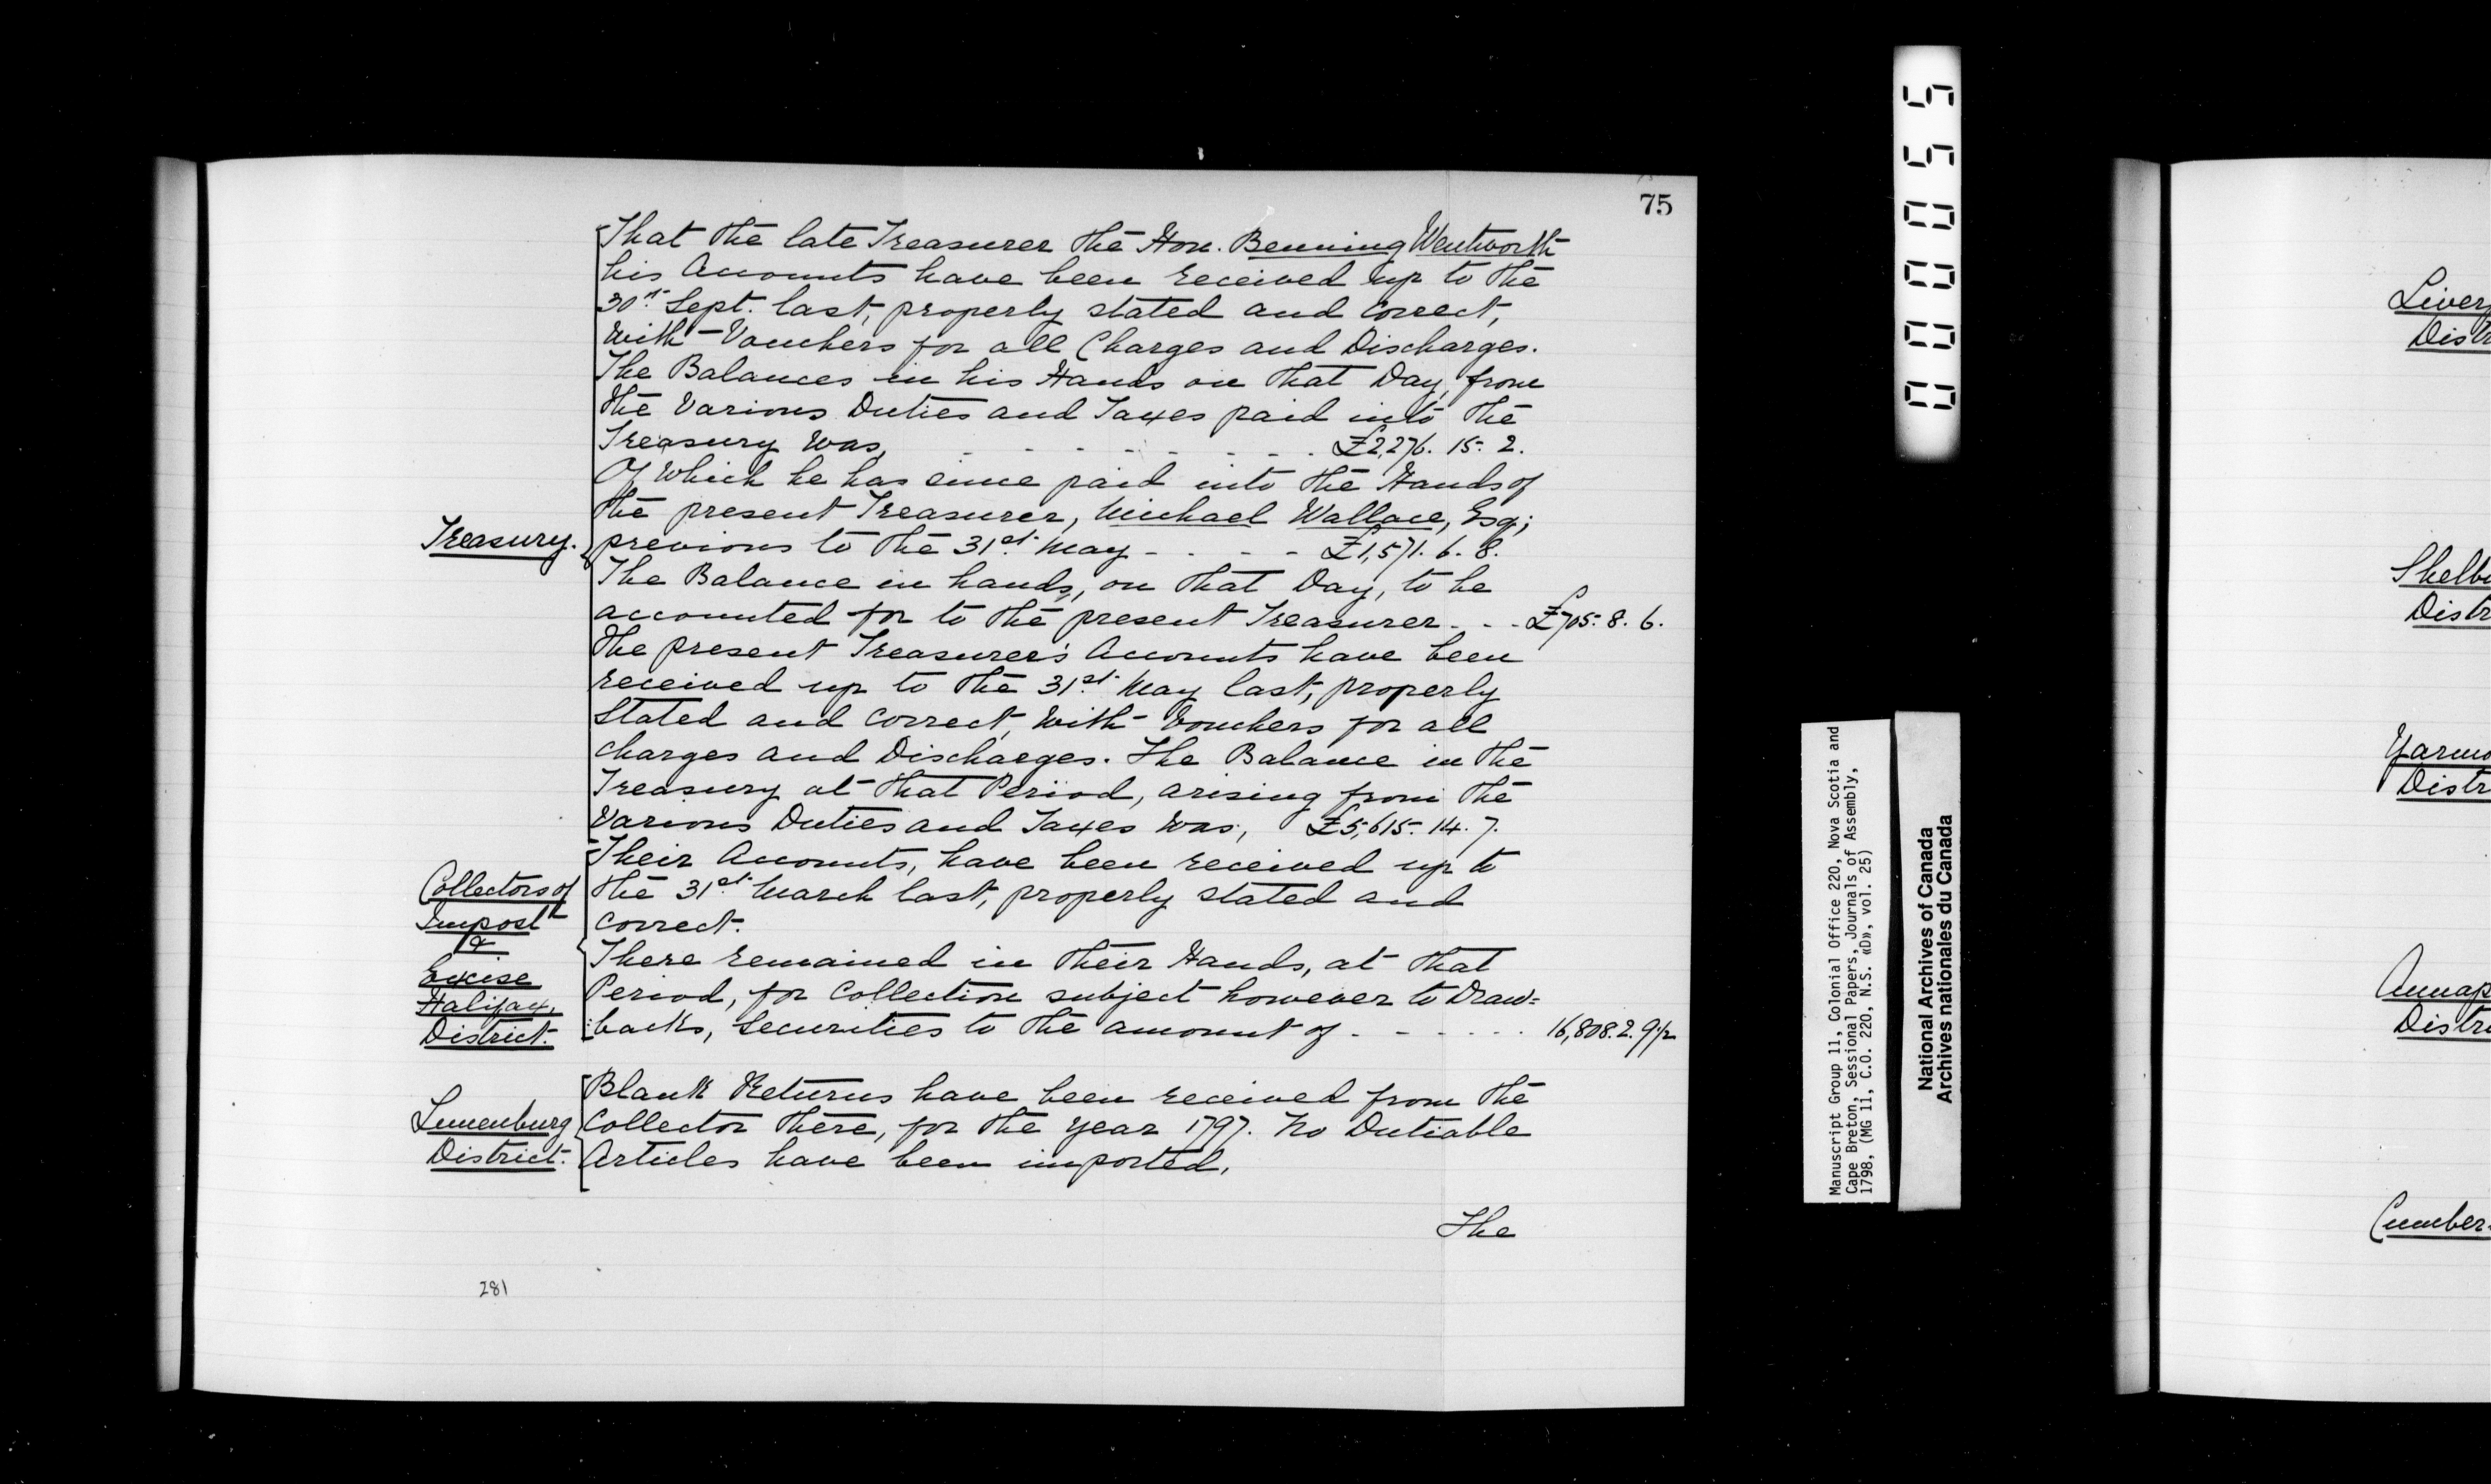 75
That the late Treasurer the Hon. Benning Wentworth
his Accounts have been received up to the
30th Sept. last, properly stated and correct,
with Vouchers for all Charges and Discharges.
The Balances in his Hands on that Day, from
the Various Duties and Taxes paid into the
Treasury was, - - - - - - - - £2,276. 15. 2.
Of which he has since paid into the Hands of
the present Treasurer, Michael Wallace, Esq;
Treasury. previous to the 31st May - - - - £1,571. 6. 8.
The Balance in hands, on that Day, to be
accounted for to the present Treasurer - - - £705. 8. 6.
The present Treasurer's Accounts have been
received up to the 31st May last, properly
stated and correct, with Vouchers for all
charges and Discharges. The Balance in the
Treasury at that Period, arising from the
Various Duties and Taxes was, £5,615. 14. 7.
Their Accounts, have been received up to
Collectors of the 31st March last, properly stated and
Impost correct.
&
There remained in their Hands, at that
Excise
Halifax, Period, for Collection subject however to Draw=
District. backs, Securities to the amount of - - - - - - 16,808. 2. 9 1/2
Blank Returns have been received from the
Lunenburg Collector there, for the year 1797. No Dutiable
District. Articles have been imported.
The
281
000055
Manuscript Group 11, Colonial Office 220, Nova Scotia and
Cape Breton, Sessional Papers, Journals of Assembly,
1798, (MG 11, C.O. 220, N.S. «D», vol. 25)
National Archives of Canada
Archives nationales du Canada
Distr
Distr
Distr